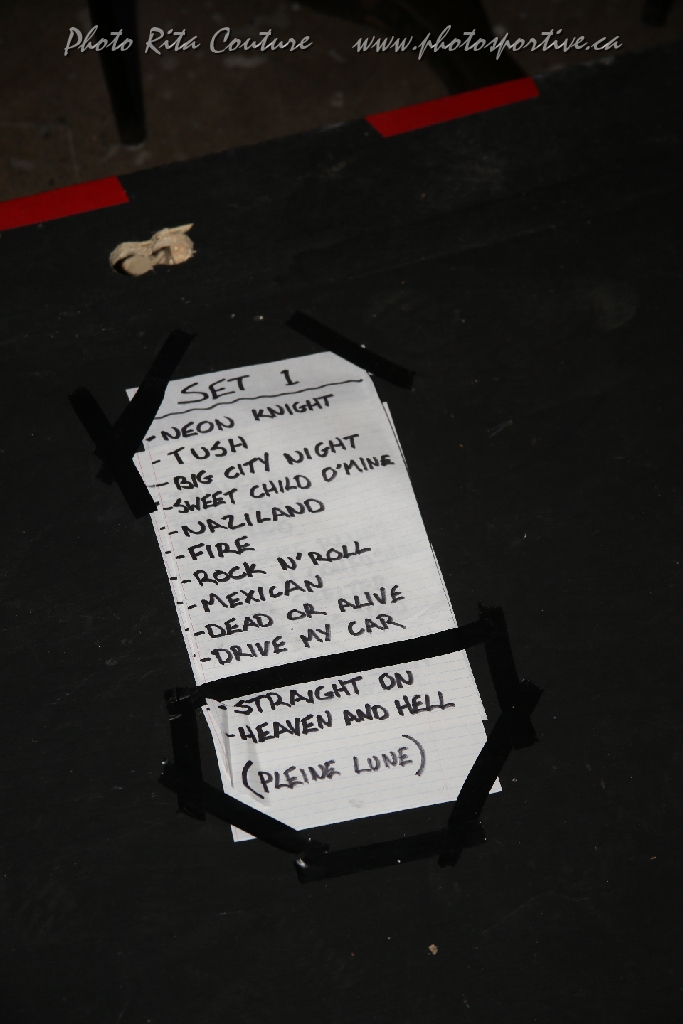 Photo Rita Couture www.photosportive.ca
SET 1
-NEON KNIGHT
-TUSH
-BIG CITY NIGHT
-SWEET CHILD O'MINE
-NAZILAND
-FIRE
-ROCK N'ROLL
-MEXICAN
-DEAD OR ALIVE
-DRIVE MY CAR
-STRAIGHT ON
-HEAVEN AND HELL
(PLEINE LUNE)